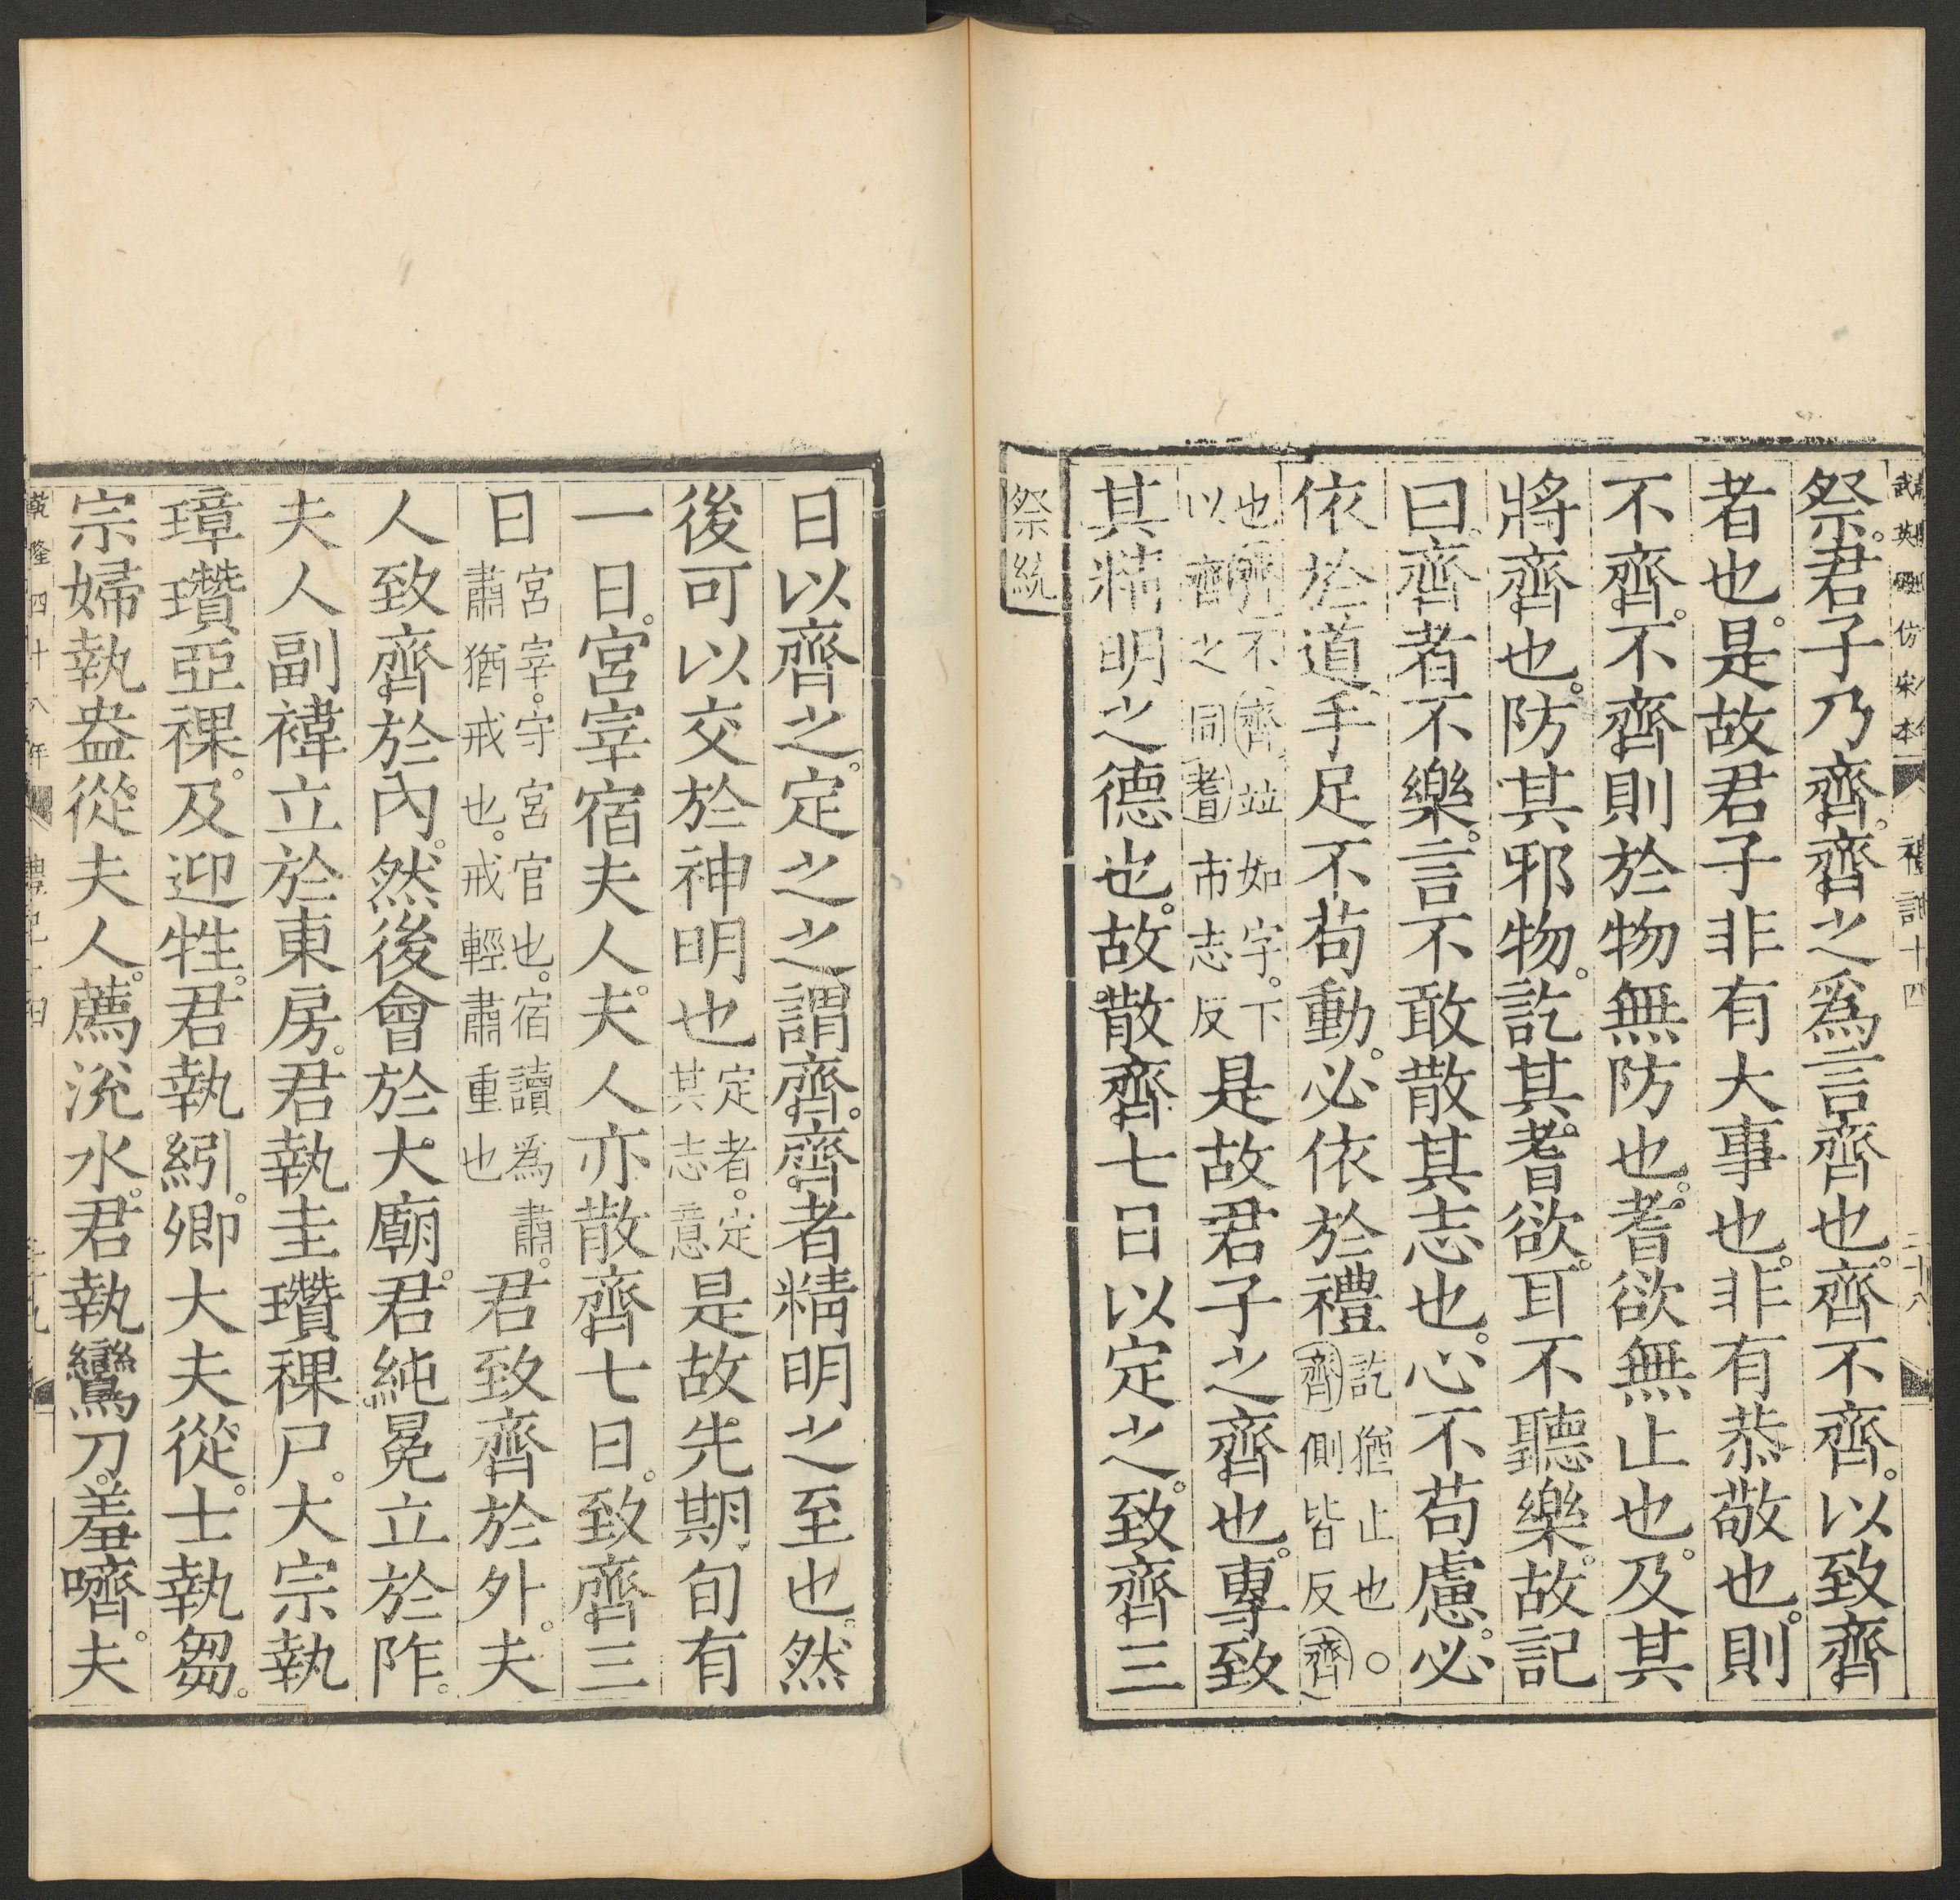 祭。君子乃齊。齊之爲言齊也。齊不齊。以致齊
者也。是故君子非有大事也。非有恭敬也。則
不齊。不齊則於物無防也。耆欲無止也。及其
將齊也。防其邪物。訖其耆欲。耳不聽樂。故記
曰。齊者不樂。言不敢散其志也。心不苟慮。必
依於道。手足不苟動。必依於禮
訖猶止也。○
齊側皆反齊
也齊不齊並如字。下
以齊之同耆市志反
是故君子之齊也。專致
其精明之德也。故散齊七日以定之。致齊三
祭統
武英殿仿宋本
禮記十四
二十八
日以齊之。定之之謂齊。齊者精明之至也。然
後可以交於神明也
定者。定
其志意
是故先期旬有
一日。宮宰宿夫人。夫人亦散齊七日。致齊三
日
宮宰。守宮官也。宿讀爲肅。
肅猶戒也。戒輕肅重也
君致齊於外。夫
人致齊於內。然後會於大廟。君純冕立於阼。
夫人副褘立於東房。君執圭瓚祼尸。大宗執
璋瓚亞祼。及迎牲。君執紖。卿大夫從。士執芻。
宗婦執盎從。夫人薦涗水。君執鸞刀。羞嚌。夫
乾隆四十八年
禮記十四